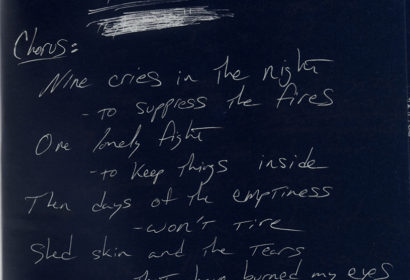 Chorus:
Nine cries in the night
- to suppress the fires
One lonely fight
- to keep things inside
Then days of the emptiness
- won't tire
Shed skin and the tears
that have burned my eyes